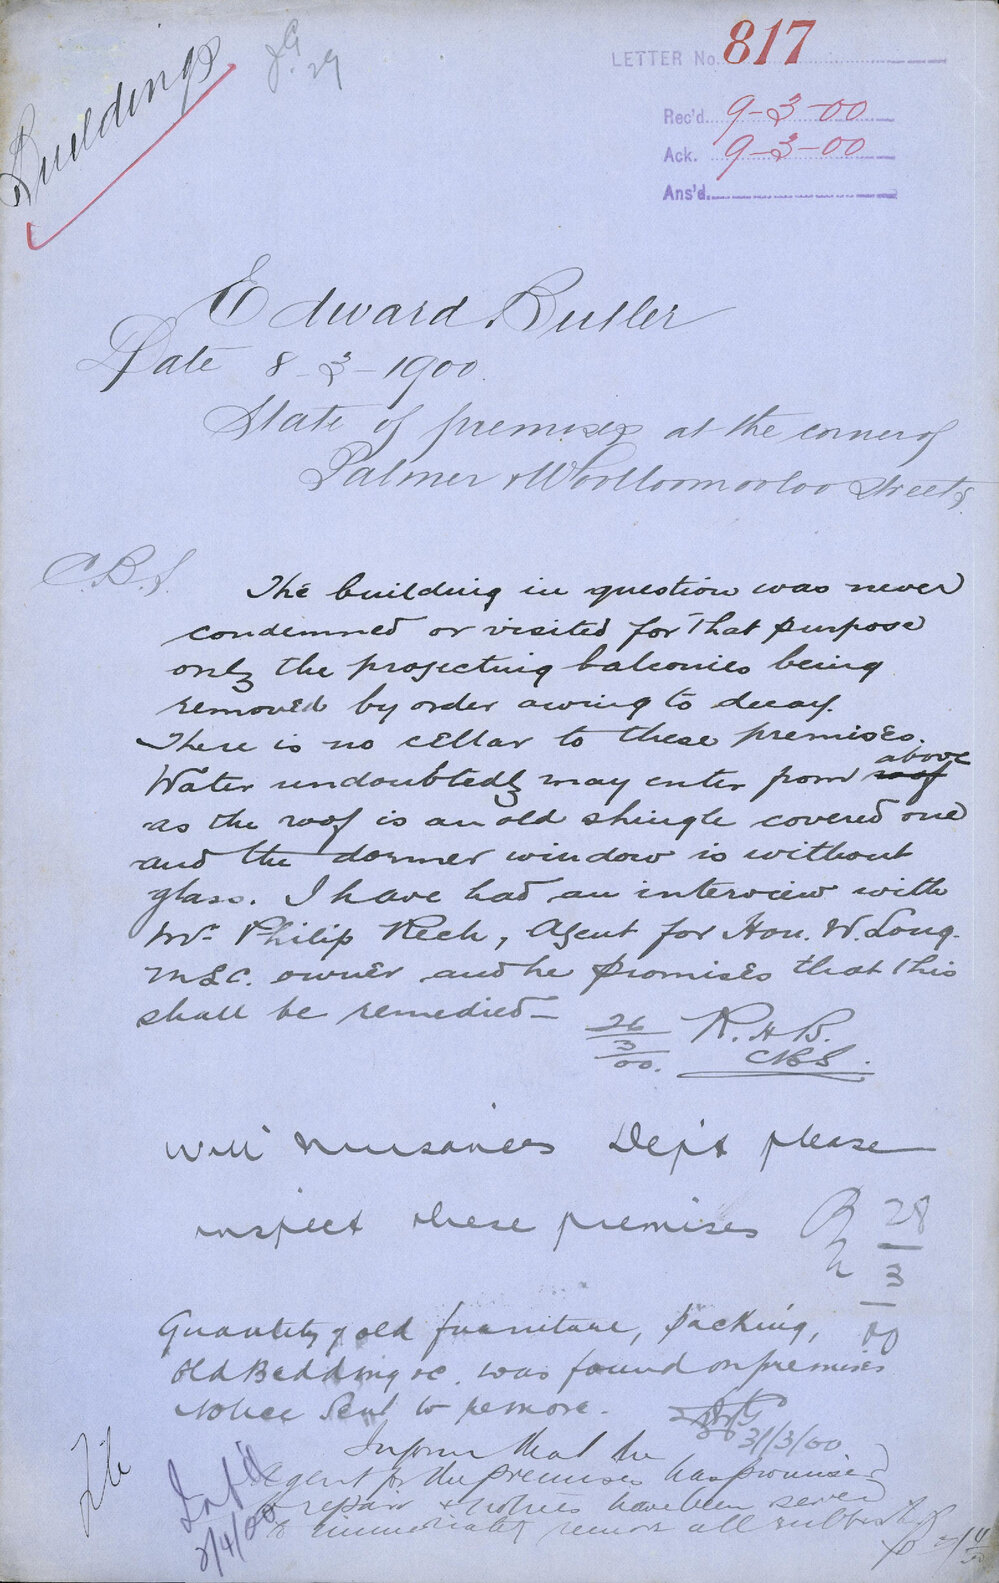 Buildings
LETTER No. 817
Rec'd. 9-3-00
Ack. 9-3-00
Ans'd.
Edward Butler
Date 8-3-1900.
State of premises at the corner of
Palmer & Woolloomooloo Streets
C.B.S
The building in question was never
condemned or visited for that purpose
only the projecting balconies being
removed by order owing to decay.
There is no cellar to these premises.
above
Water undoubtedly may enter from roof
as the roof is an old shingle covered one
and the dormer window is without
glass. I have had an interview with
Mr. Philip Rech, Agent for Hon. W. Long.
M.L.C. owner and he promises that this
shall be remedied —
26/3/00. R.H.B.
CBS.
Will Nuisances Dep't please
inspect these premises
28/3/00
Quantity of old furniture, packing,
old Bedding &c. was found on premises
Notice Sent to remove.
31/3/00
Inform that the
Agent for the premises has promised
to repair & notices have been served
to immediately remove all rubbish
Inf'd
2/4/00